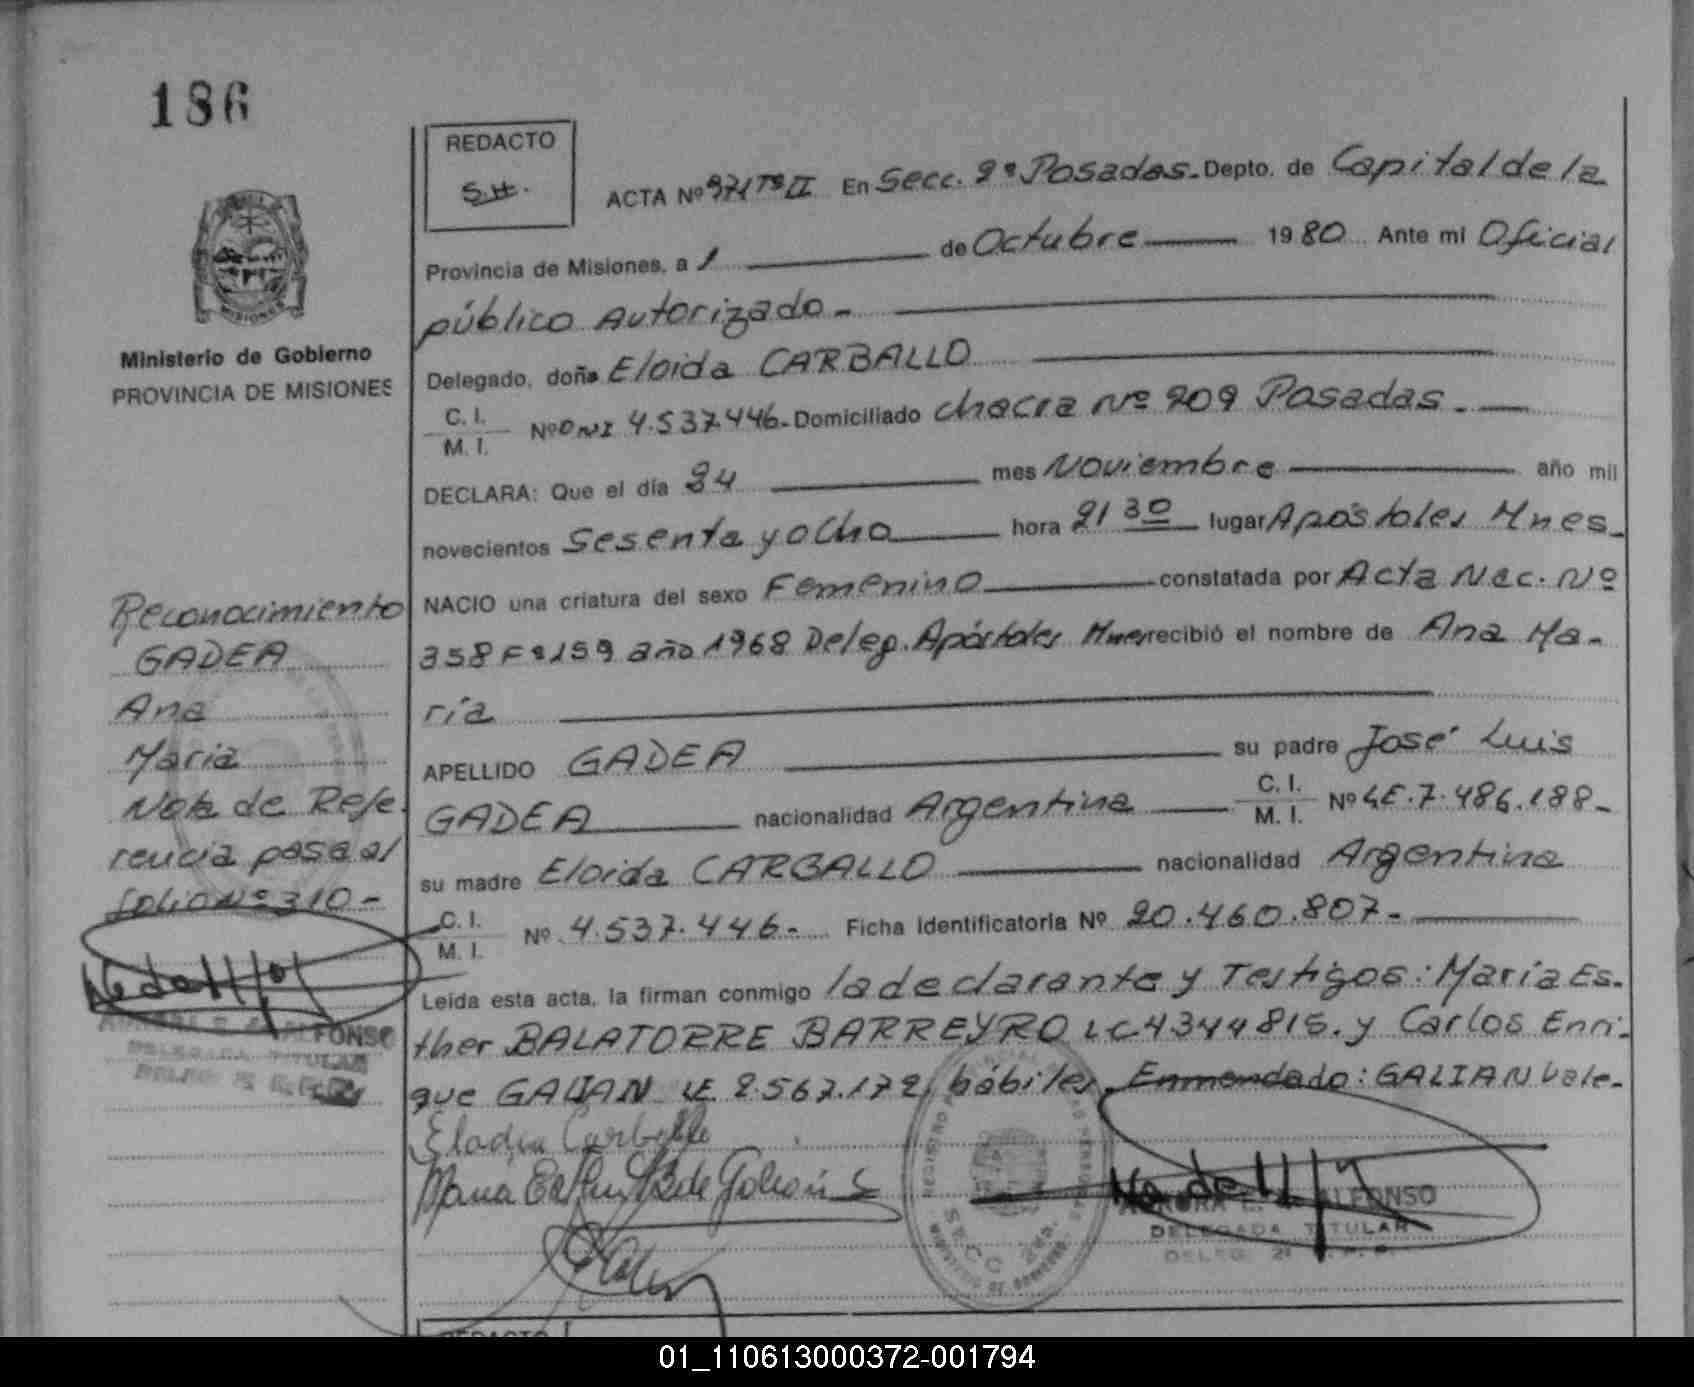 186
REDACTO
S.H.
ACTA Nº 971 Tº II En Secc. 2ª Posadas. Depto. de Capital de la
Provincia de Misiones, a 1 de Octubre 1980 Ante mi Oficial
público Autorizado.
MISIONES
Ministerio de Gobierno
PROVINCIA DE MISIONES
Delegado, doña Eloida CARBALLO
C. I.
M. I.
Nº DNI 4.537.446. Domiciliado Chacra Nº 209 Posadas.
DECLARA: Que el día 24 mes Noviembre año mil
novecientos Sesenta y ocho hora 21 30 lugar Apóstoles Mnes.
NACIO una criatura del sexo Femenino constatada por Acta Nac. Nº
358 Fº 159 año 1968 Deleg. Apóstoles Mnes recibió el nombre de Ana Ma-
ría
APELLIDO GADEA su padre José Luis
GADEA nacionalidad Argentina C. I.
M. I. Nº LE. 7.486.188-
su madre Eloida CARBALLO nacionalidad Argentina
C. I.
M. I.
Nº 4.537.446. Ficha Identificatoria Nº 20.460.807-
Leída esta acta, la firman conmigo la declarante y Testigos: María Es-
ther BALATORRE BARREYRO LC 4344815. y Carlos Enri-
que GALIAN LE 2.567.172, hábiles. Enmendado: GALIAN Vale-
Reconocimiento
GADEA
Ana
María
Nota de Refe-
rencia pasa al
folio Nº 310-
ALFONSO
DELEGADA TITULAR
AURORA E. ALFONSO
DELEGADA TITULAR
SECC 2da.
REDACTO
01_110613000372-001794